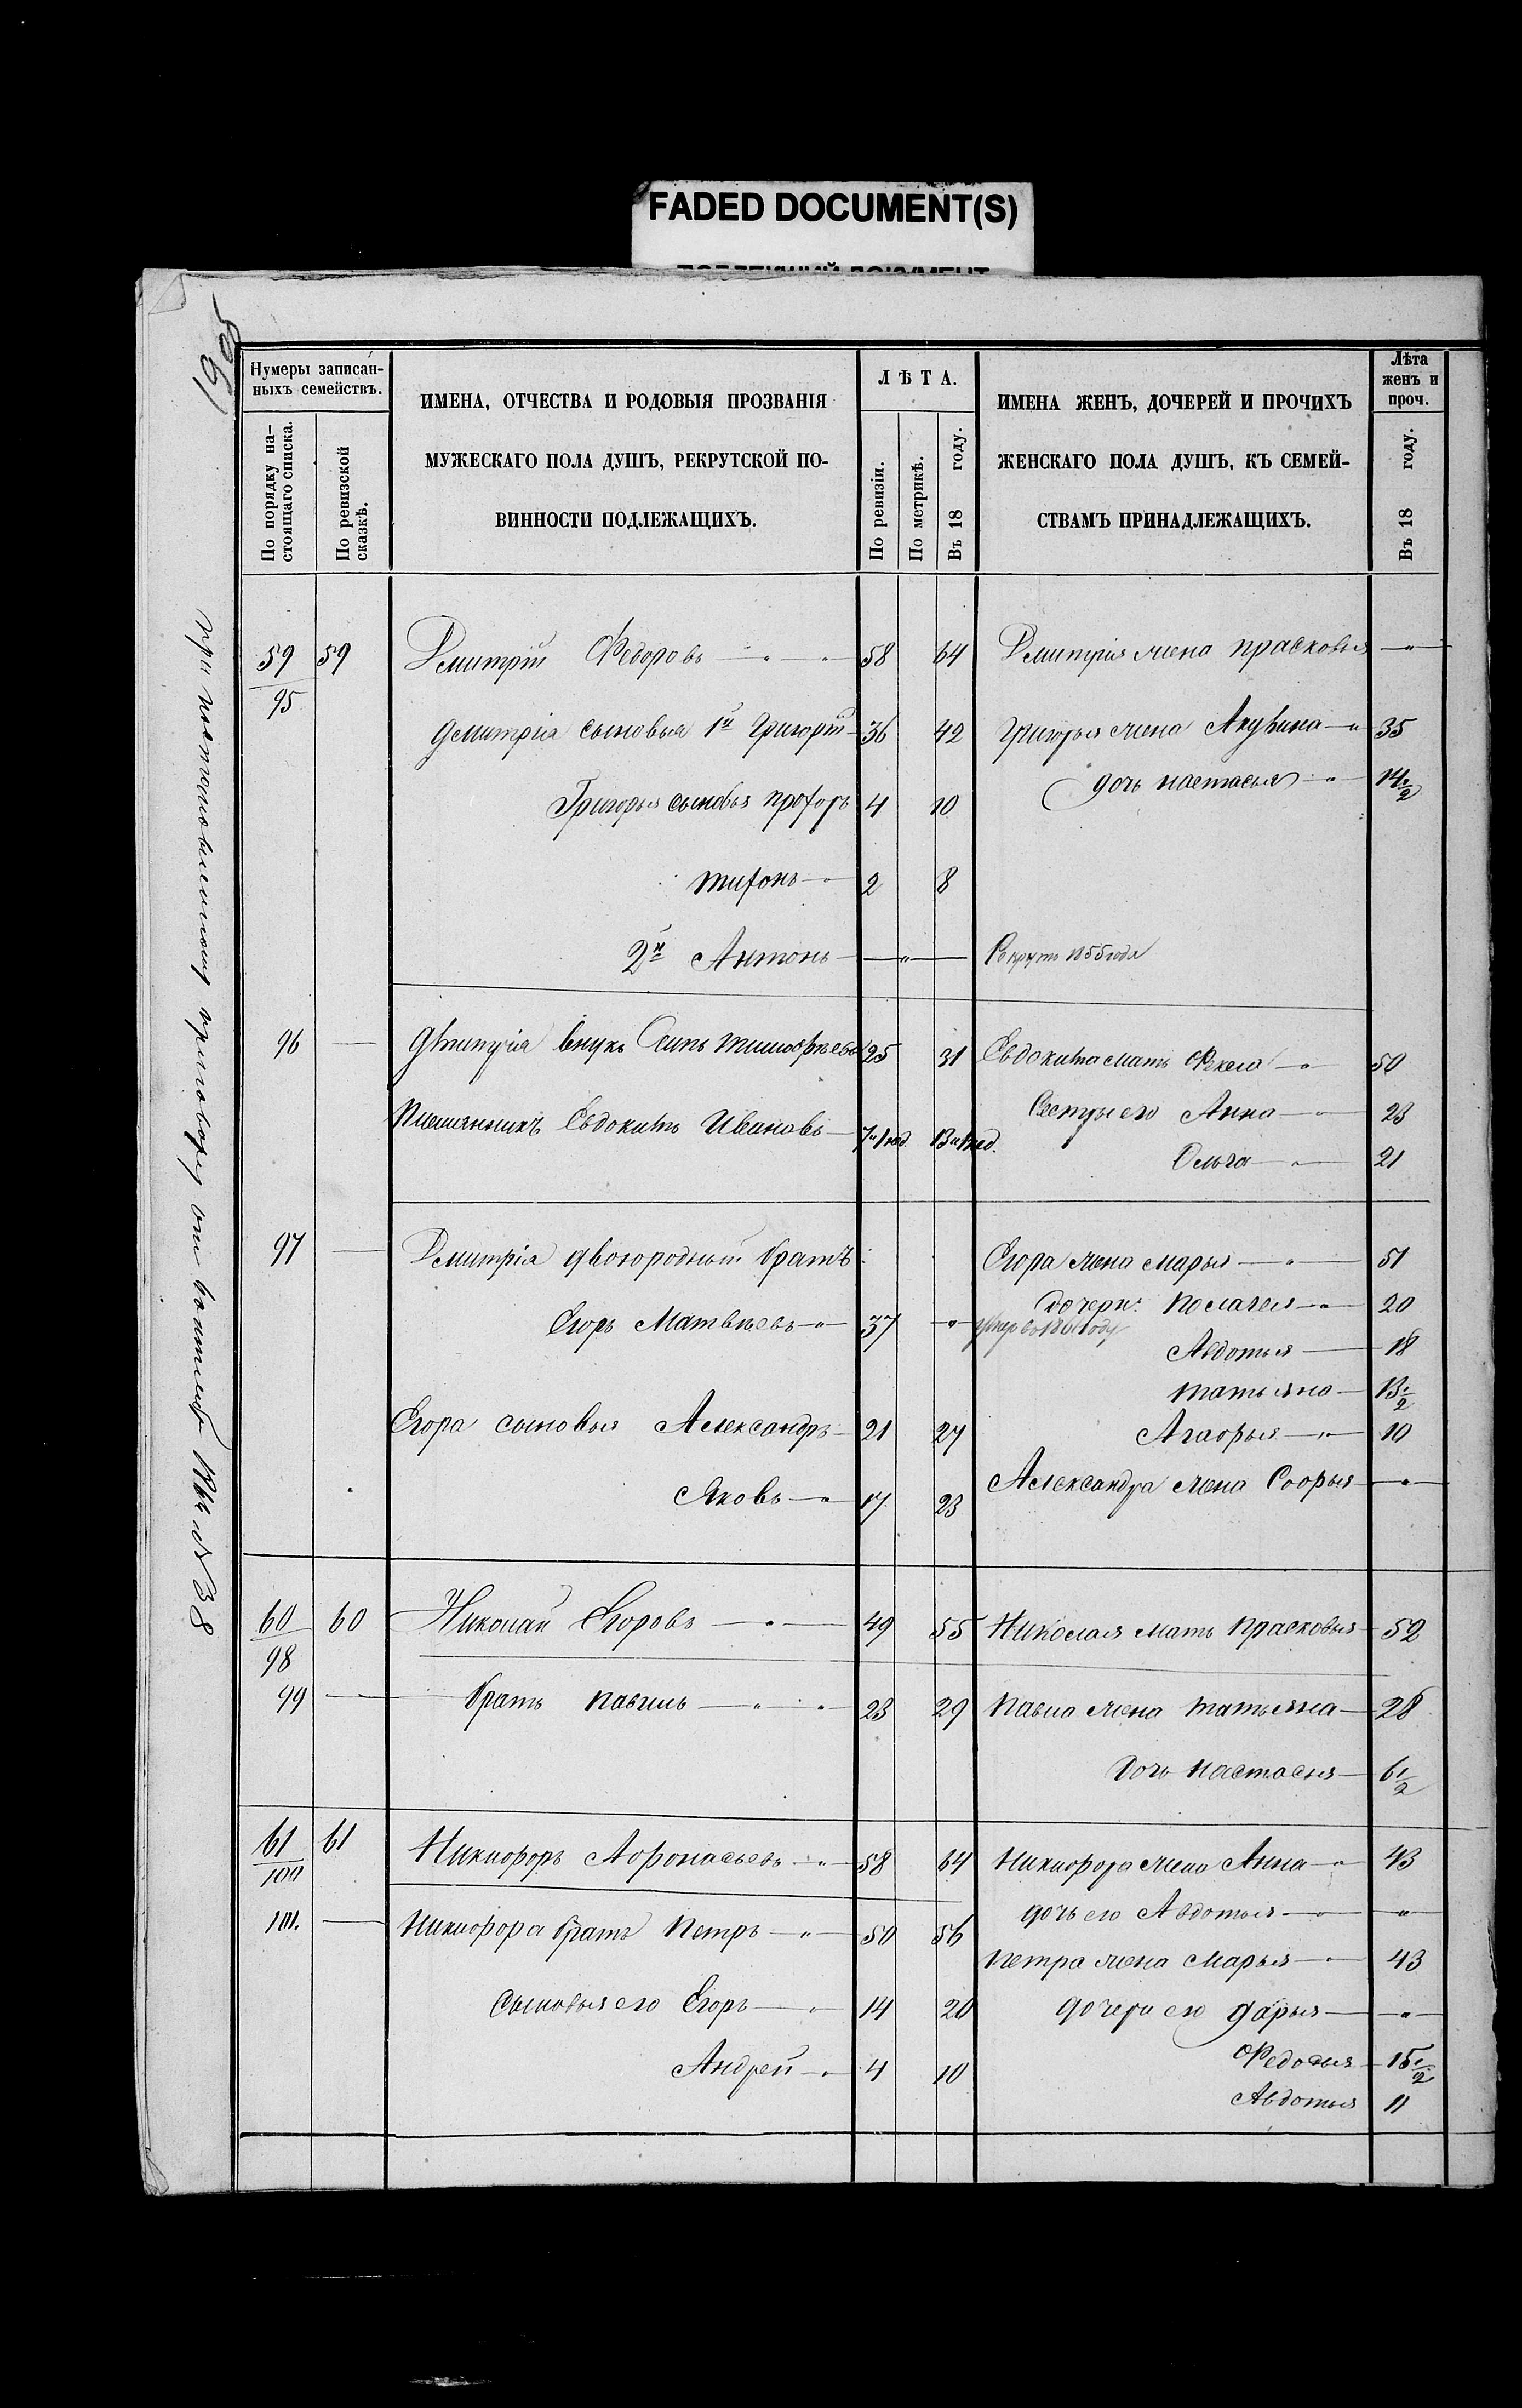 FADED DOCUMENT(S)
Нумеры записан-
ныхъ семействъ.
По порядку на-
стоящаго списка.
По ревизской
сказкѣ.
ИМЕНА, ОТЧЕСТВА И РОДОВЫЯ ПРОЗВАНІЯ
МУЖЕСКАГО ПОЛА ДУШЪ, РЕКРУТСКОЙ ПО-
ВИННОСТИ ПОДЛЕЖАЩИХЪ.
ЛѢТА.
По ревизіи.
По метрикѣ.
Въ 18 году.
ИМЕНА ЖЕНЪ, ДОЧЕРЕЙ И ПРОЧИХЪ
ЖЕНСКАГО ПОЛА ДУШЪ, КЪ СЕМЕЙ-
СТВАМЪ ПРИНАДЛЕЖАЩИХЪ.
Лѣта
женъ и
проч.
Въ 18 году.
59 59 Дмитрій Федоровъ — " — " 58 64 Дмитрія жена прасковья — " —
95
дмитрія сыновья 1й Григорій 36 42 григорья жена Акулина — " 35
дочь настасья — " — 14 1/2
Григорья сыновья профоръ 4 10
тифонъ — " 2 8
2й Антонъ — " — Рекрутъ 1855 года
96 — дмитрія внукъ тимофѣевъ 25 31 Евдокима мать Фекла — " — 50
Сестры его Анна — " — 23
племянникъ Евдокимъ Ивановъ — 13
Ольга — " — 21
97 — Дмитрія двоюродный братъ Егора жена марья — " — 51
дочери: пелагея — " — 20
Егоръ Матвѣевъ — " 37 — " — умер въ 1861 году
Авдотья — 18
татьяна — 13 1/2
Егора сыновья Александръ — 21 27 Агафья — " — 10
Александра жена Софья — " —
Яковъ — " 17 23
60 60 Николай Егоровъ — " — 49 55 Николая мать прасковья — 52
98
99 — братъ павелъ — " — " 23 29 павла жена татьяна — 28
дочь настасья — 6 1/2
61 61 Никифоръ Афонасьевъ — " — 58 64 никифора жена Анна — " 43
100
дочь его Авдотья — " — " —
101. — никифора братъ петръ — " — 50 56
петра жена марья — " — 43
сыновья его Егоръ — " 14 20 дочери его дарья — " —
Андрей — " 4 10 Федосья — 15 1/2
Авдотья 11